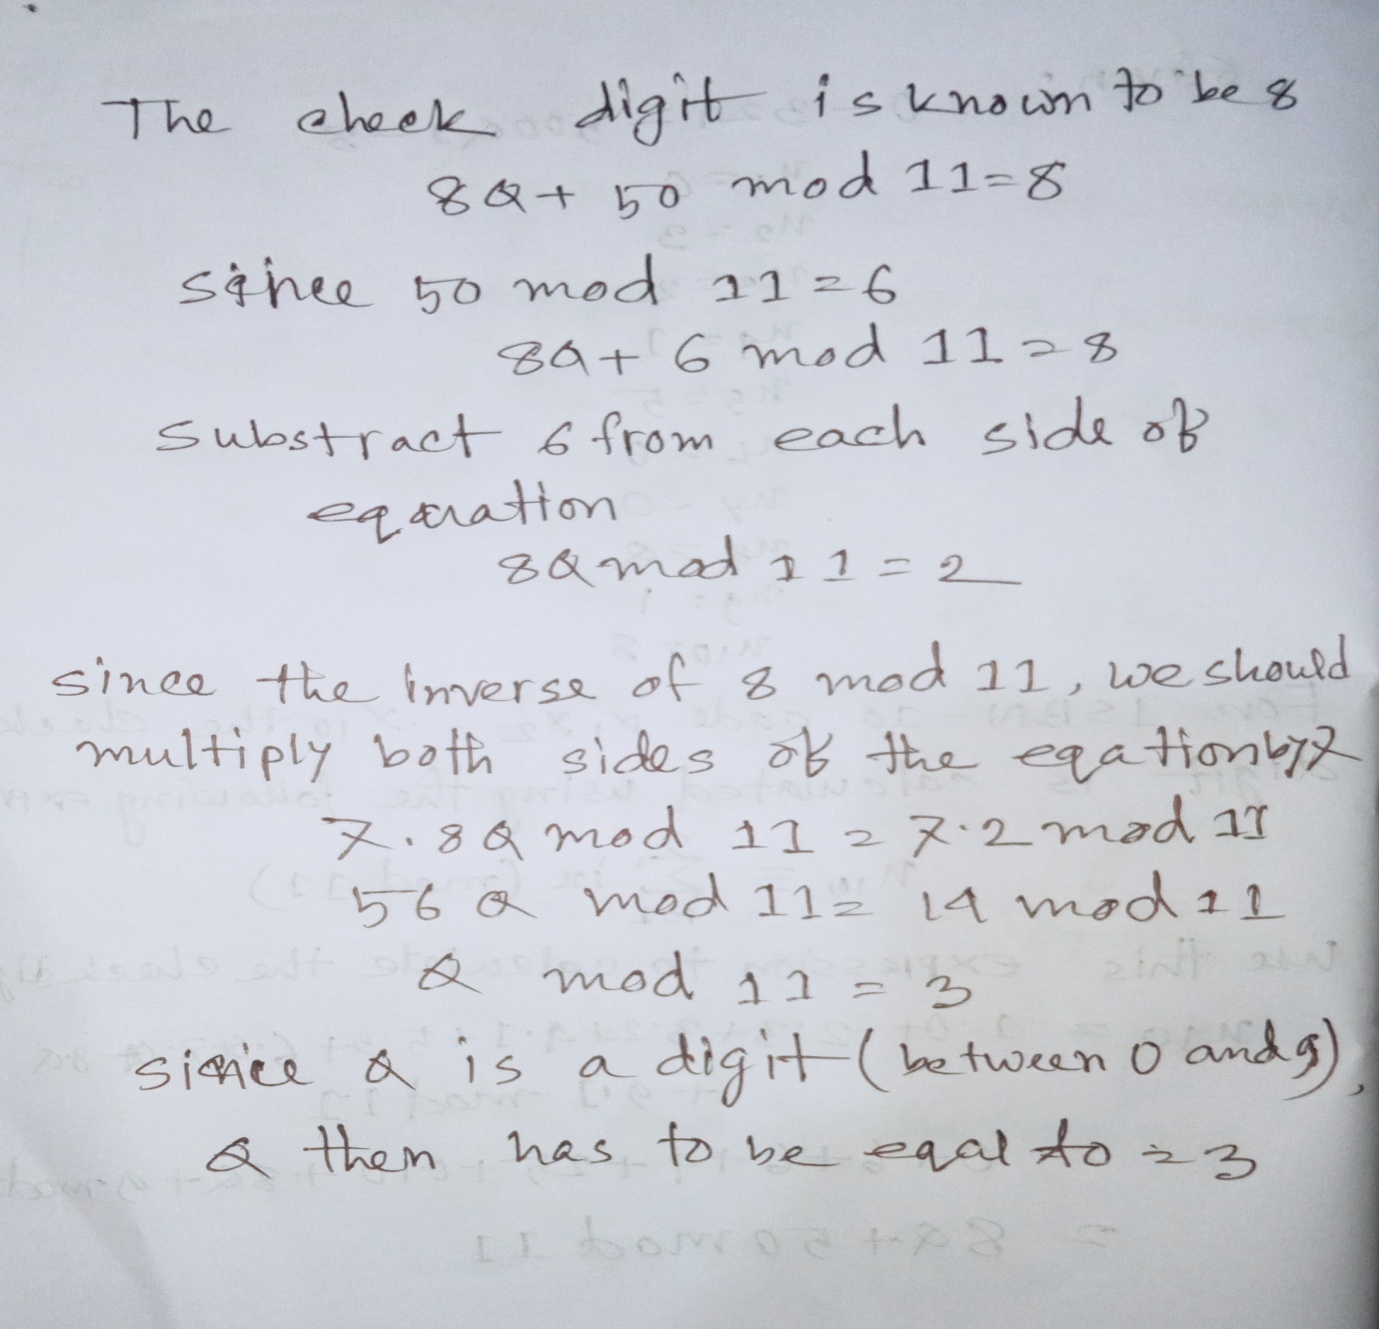 The check digit is known to be 8
8Q+ 50 mod 11=8
since 50 mod 11=6
8Q+ 6 mod 11=8
substract 6 from each side of
equation
8Q mod 11=2
since the inverse of 8 mod 11, we should
multiply both sides of the eqation by 7
7.8Q mod 11=7.2 mod 11
56Q mod 11= 14 mod 11
Q mod 11=3
since Q is a digit (between 0 and 9),
Q then has to be eqal to =3